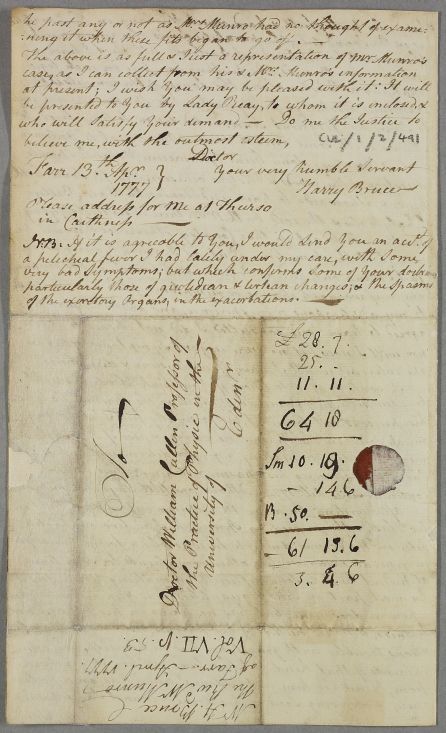 he past any or not as Mrs. Munro had no thought of exame-
ning it when these fits began to go of. —
The above is as full & Just a representation of Mr. Munro's
case, as I can collect from his & Mrs. Munro's information
at present; I wish You may be pleased with it: It will
be presented to You by Lady Reay, to whom it is inclosed &
who will satisfy Your demand — Do me the Justice to
believe me, with the outmost esteem,
CUL/1/2/491
Doctor
Farr 13th Apr.
1777 }
Your very humble Servant
Harry Bruce
Please address for me at Thurso
in Caithness —
N:B: If it is agreeable to You, I would send You an act. of
a petecheal fever I had lately under my care, with some
very bad symptoms; but which confirms some of Your doctrines
particularly those of quotidian & tertian changes; & the spasms
of the excretory Organs, in the exacerbations. —
To
Doctor William Cullen Professor of
the Practice of Physic in the
University of
Edinr.
£ 28. 7.
25. -
11. 11.
64 18
Sm 10. 19.
- 14 6
B. 50. —
61 13. 6
3. 4. 6
Mr. H. Bruce
the Revd. Mr. Munro
of Farr. April 1777
Vol. VII p. 53.